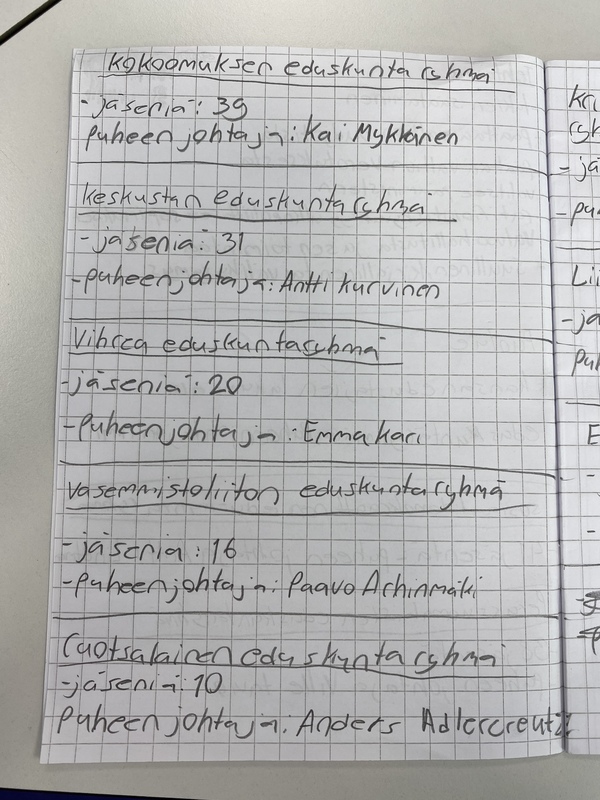 kokoomuksen eduskuntaryhmä
- jäseniä: 39
puheenjohtaja: Kai Mykkänen
keskustan eduskuntaryhmä
- jäseniä: 31
- puheenjohtaja: Antti kurvinen
Vihreä eduskuntaryhmä
- jäseniä: 20
- puheenjohtaja: Emma kari
vasemmistoliiton eduskuntaryhmä
- jäseniä: 16
- puheenjohtaja: Paavo Arhinmäki
ruotsalainen eduskuntaryhmä
- jäseniä: 10
puheenjohtaja: Anders Adlercreutz
- jä
- pu
Lii
- jä
puh
E